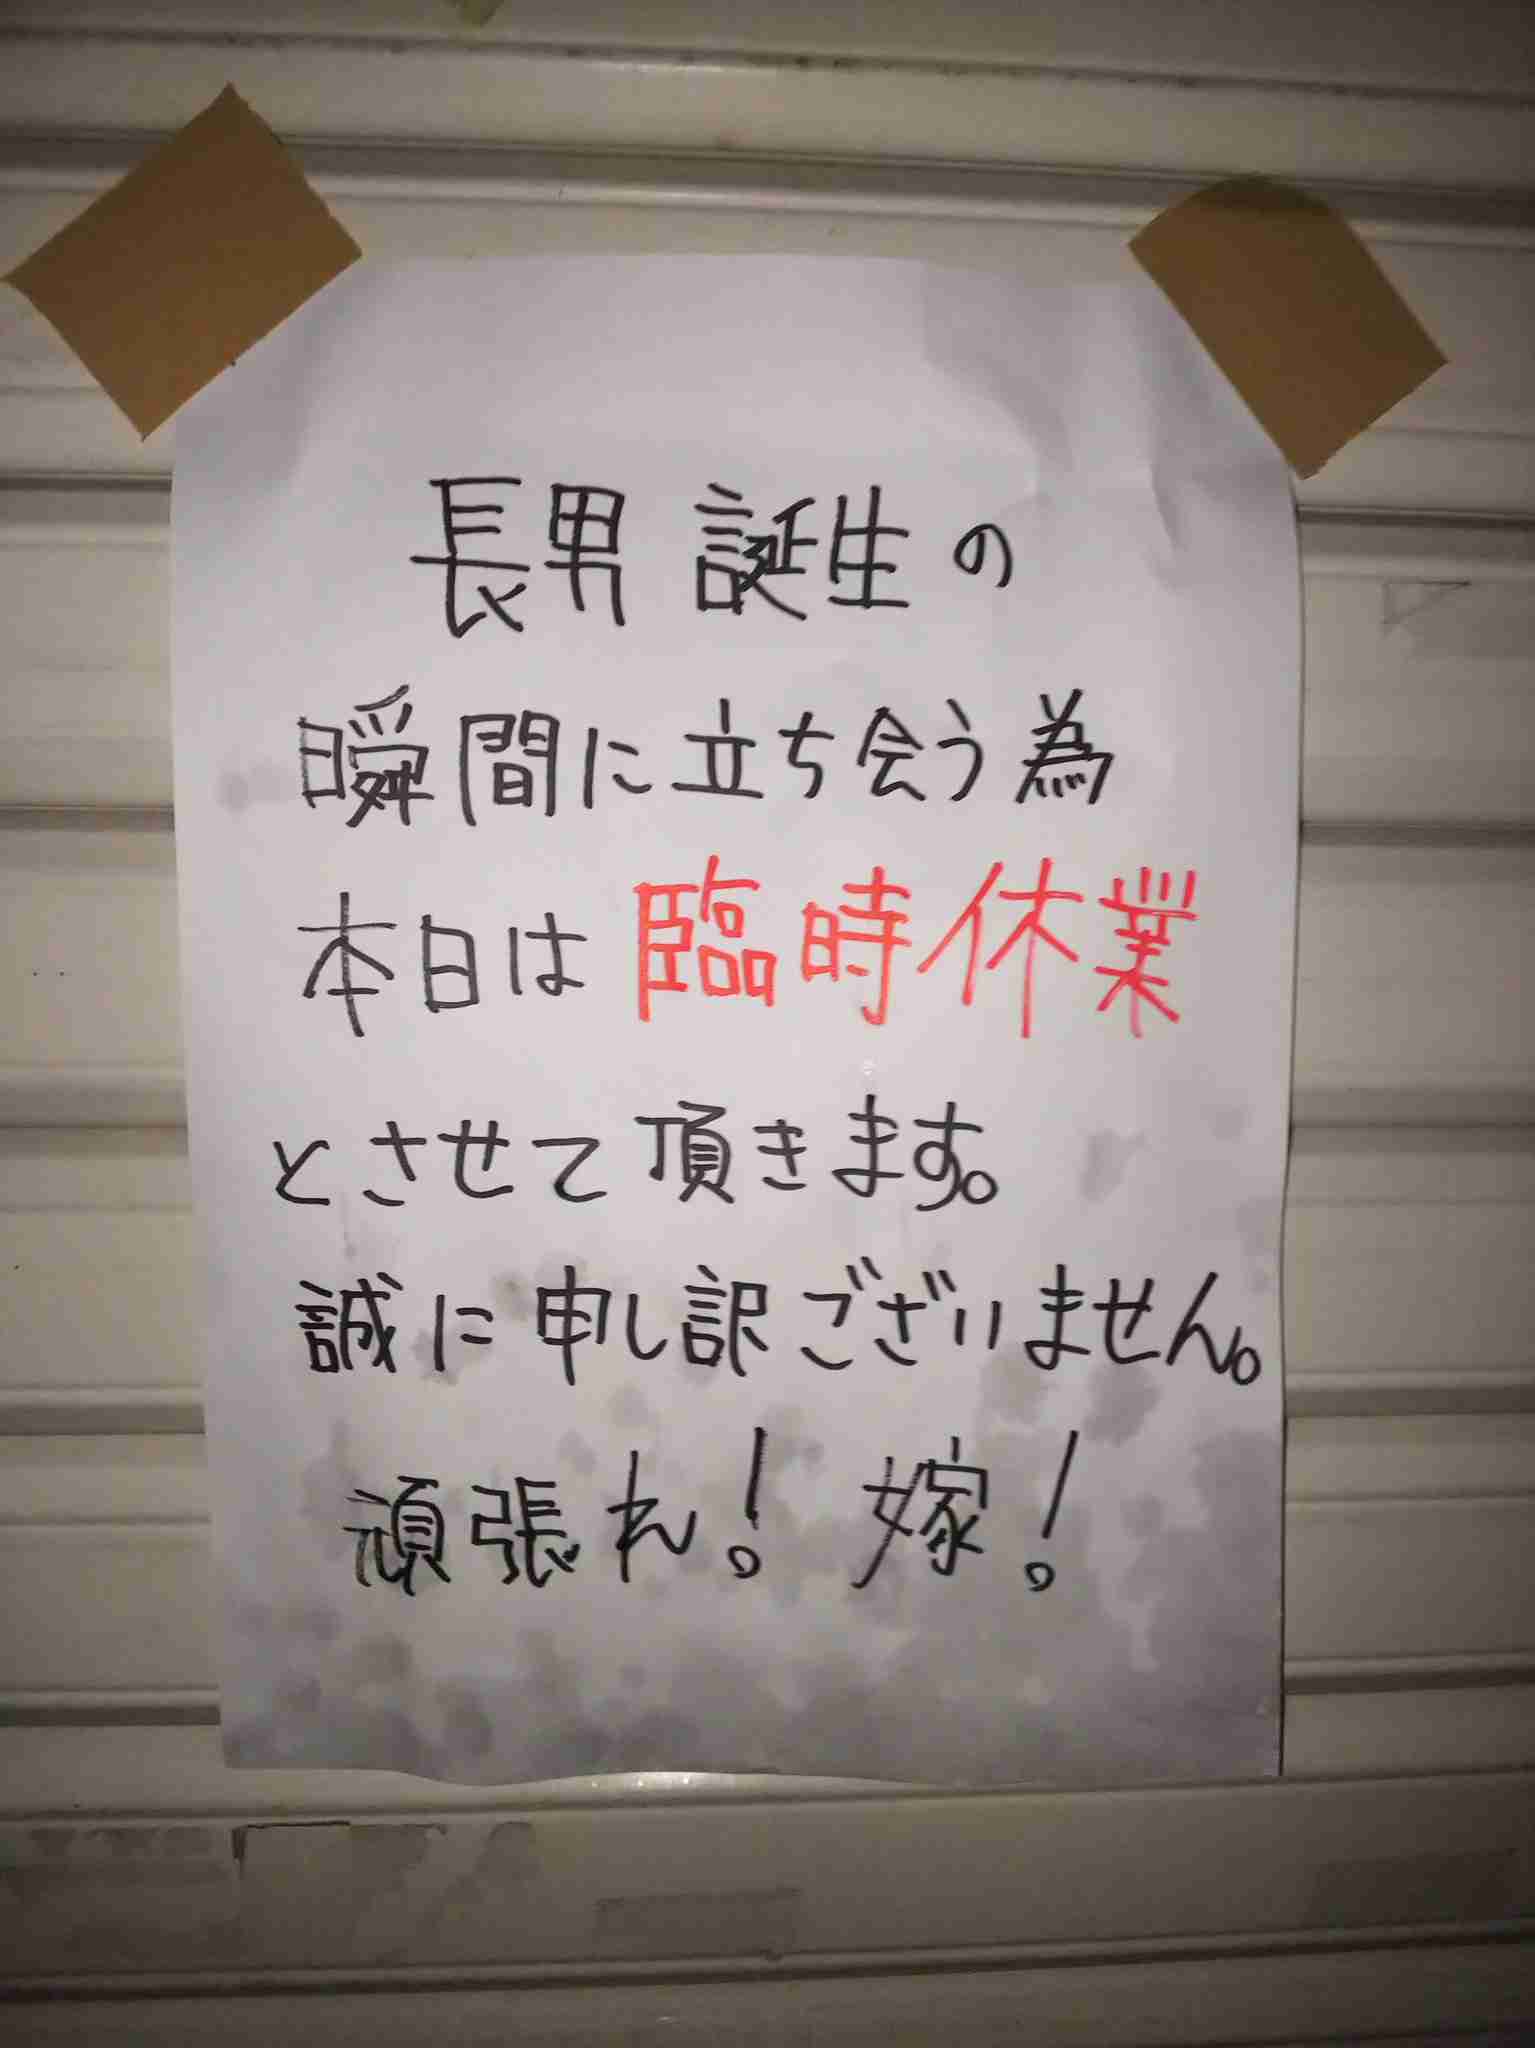 長男誕生の
瞬間に立ち会う為
本日は臨時休業
とさせて頂きます。
誠に申し訳ございません。
頑張れ！嫁！